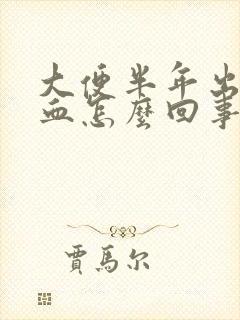 大便半年出
血怎麼回事
賈馬尔